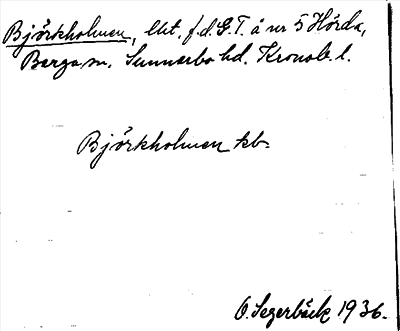 Björkholmen, lht. f.d. G.T. å nr 5 Hörda,
Berga sn. Sunnerbo hd. Kronob. l.
Björkholmen tb.
O. Segerbäck 1936.